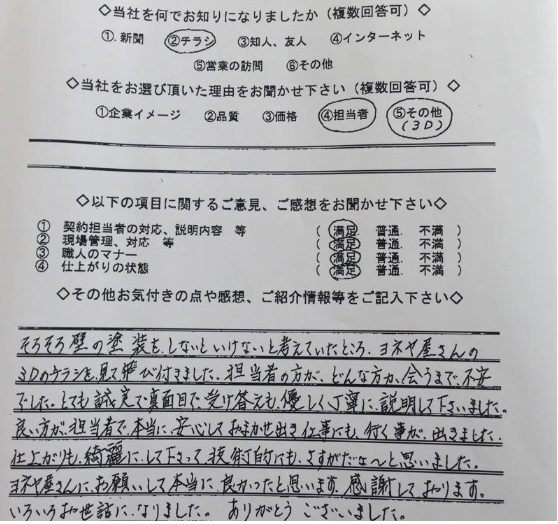 ◇当社を何でお知りになりましたか（複数回答可）◇
①.新聞 ②チラシ ③知人、友人 ④インターネット
⑤営業の訪問 ⑥その他
◇当社をお選び頂いた理由をお聞かせ下さい（複数回答可）◇
①企業イメージ ②品質 ③価格 ④担当者 ⑤その他
(3D)
◇以下の項目に関するご意見、ご感想をお聞かせ下さい◇
① 契約担当者の対応、説明内容 等 ( 満足 普通. 不満 )
② 現場管理、対応 等 ( 満足 普通. 不満 )
③ 職人のマナー ( 満足 普通. 不満 )
④ 仕上がりの状態 ( 満足 普通. 不満 )
◇その他お気付きの点や感想、ご紹介情報等をご記入下さい◇
そろそろ壁の塗装をしないといけないと考えていたところ、ヨネヤ屋さんの
3Dのチラシを見て飛び付きました。担当者の方が、どんな方か、会うまで、不安
でした。とても誠実で真面目で、受け答えも、優しく丁寧に、説明して下さいました。
良い方が、担当者で、本当に、安心しておまかせ出き仕事にも、行く事が、出きました。
仕上がりも、綺麗に、して下さって、技術的にも、さすがだな〜と思いました。
ヨネヤ屋さんに、お願いして本当に良かったと思います。感謝しております。
いろいろお世話になりました。ありがとうございました。